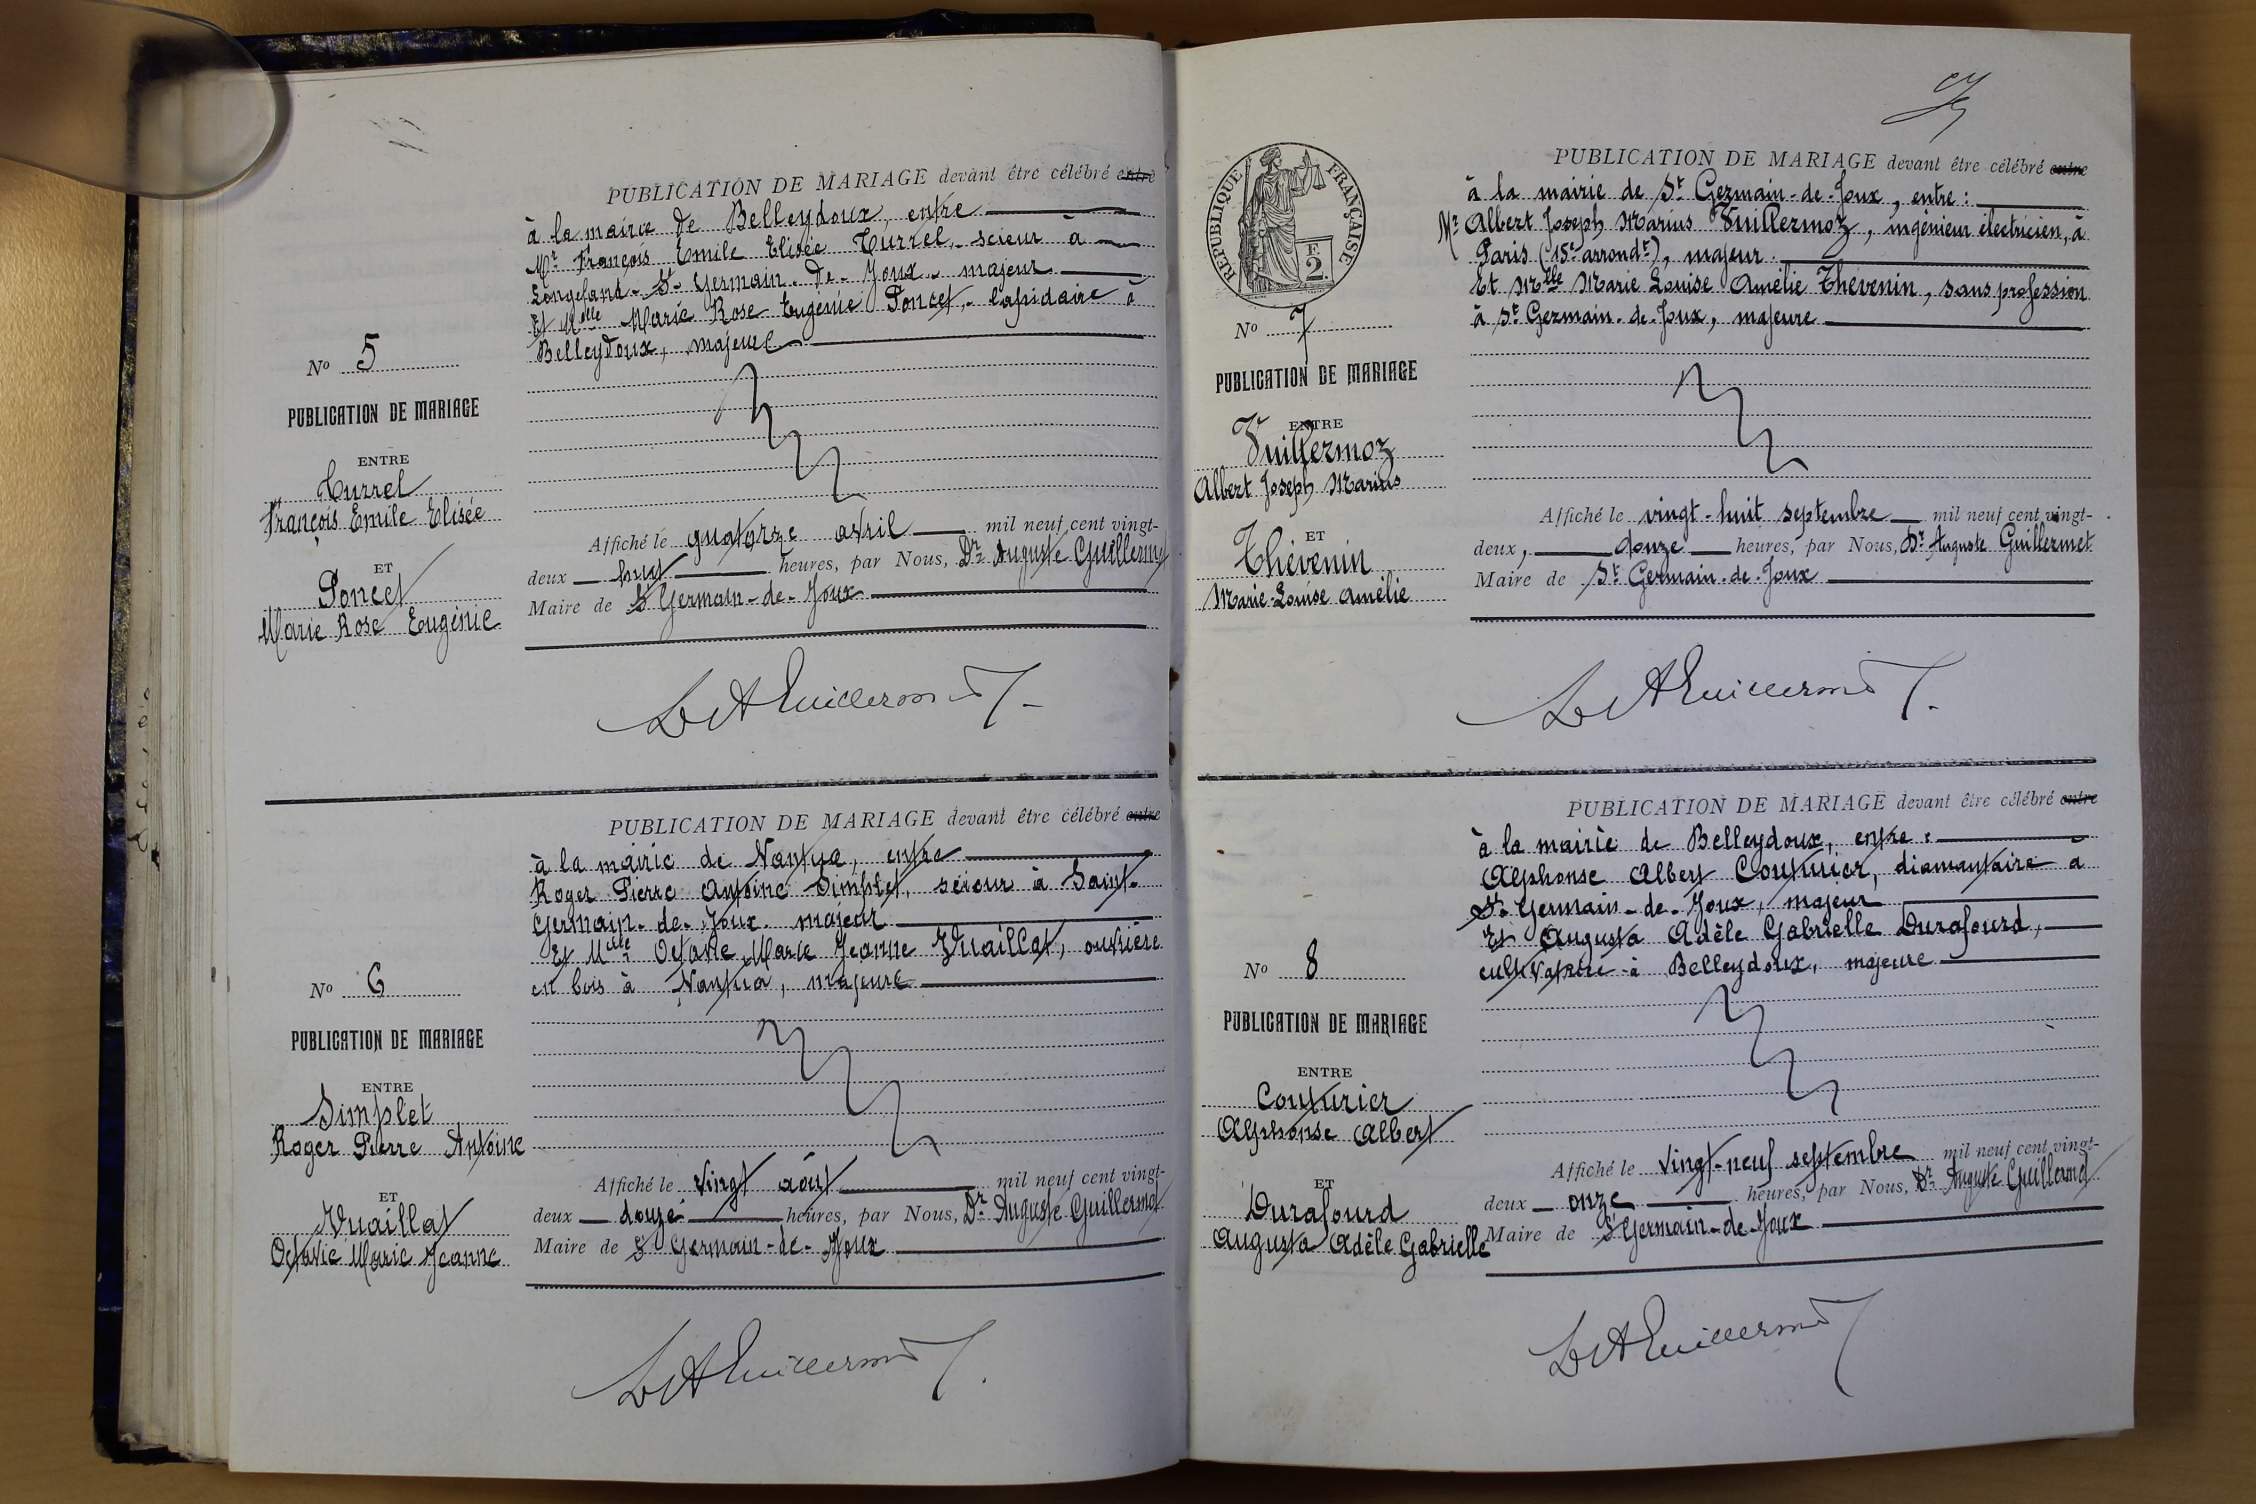 PUBLICATION DE MARIAGE devant être célébré entre
à la mairie de Belleydoux, entre
Mr François Emile Elisée Turrel, scieur à
Longefand - St Germain-de-Joux - majeur
Et Melle Marie Rose Eugénie Poncet, lapidaire à
Belleydoux, majeure
No 5
PUBLICATION DE MARIAGE
ENTRE
Turrel
François Emile Elisée
ET
Poncet
Marie Rose Eugénie
Affiché le quatorze avril mil neuf cent vingt-
deux huit heures, par Nous, Dr Auguste Guillermet
Maire de St Germain-de-Joux
Dr A Guillermet
PUBLICATION DE MARIAGE devant être célébré entre
à la mairie de Nantua, entre
Roger Pierre Antoine Simplet, scieur à Saint-
Germain-de-Joux, majeur
Et Melle Octavie Marie Jeanne Vuaillat, ouvrière
en bois à Nantua, majeure
No 6
PUBLICATION DE MARIAGE
ENTRE
Simplet
Roger Pierre Antoine
ET
Vuaillat
Octavie Marie Jeanne
Affiché le vingt août mil neuf cent vingt-
deux douze heures, par Nous, Dr Auguste Guillermet
Maire de St Germain-de-Joux
Dr A Guillermet
RÉPUBLIQUE FRANÇAISE
F.
2.
PUBLICATION DE MARIAGE devant être célébré entre
à la mairie de St Germain-de-Joux, entre :
Mr Albert Joseph Marius Vuillermoz, ingénieur électricien, à
Paris (15e arrondt), majeur
Et Melle Marie Louise Amélie Thévenin, sans profession
à St Germain-de-Joux, majeure
No 7
PUBLICATION DE MARIAGE
ENTRE
Vuillermoz
Albert Joseph Marius
ET
Thévenin
Marie-Louise Amélie
Affiché le vingt-huit septembre mil neuf cent vingt-
deux, douze heures, par Nous, Dr Auguste Guillermet
Maire de St Germain-de-Joux
Dr A Guillermet
PUBLICATION DE MARIAGE devant être célébré entre
à la mairie de Belleydoux, entre :
Alphonse Albert Couturier, diamantaire à
St Germain-de-Joux, majeur
Et Augusta Adèle Gabrielle Durafourd,
cultivatrice à Belleydoux, majeure
No 8
PUBLICATION DE MARIAGE
ENTRE
Couturier
Alphonse Albert
ET
Durafourd
Augusta Adèle Gabrielle
Affiché le vingt-neuf septembre mil neuf cent vingt-
deux onze heures, par Nous, Dr Auguste Guillermet
Maire de St Germain-de-Joux
Dr A Guillermet